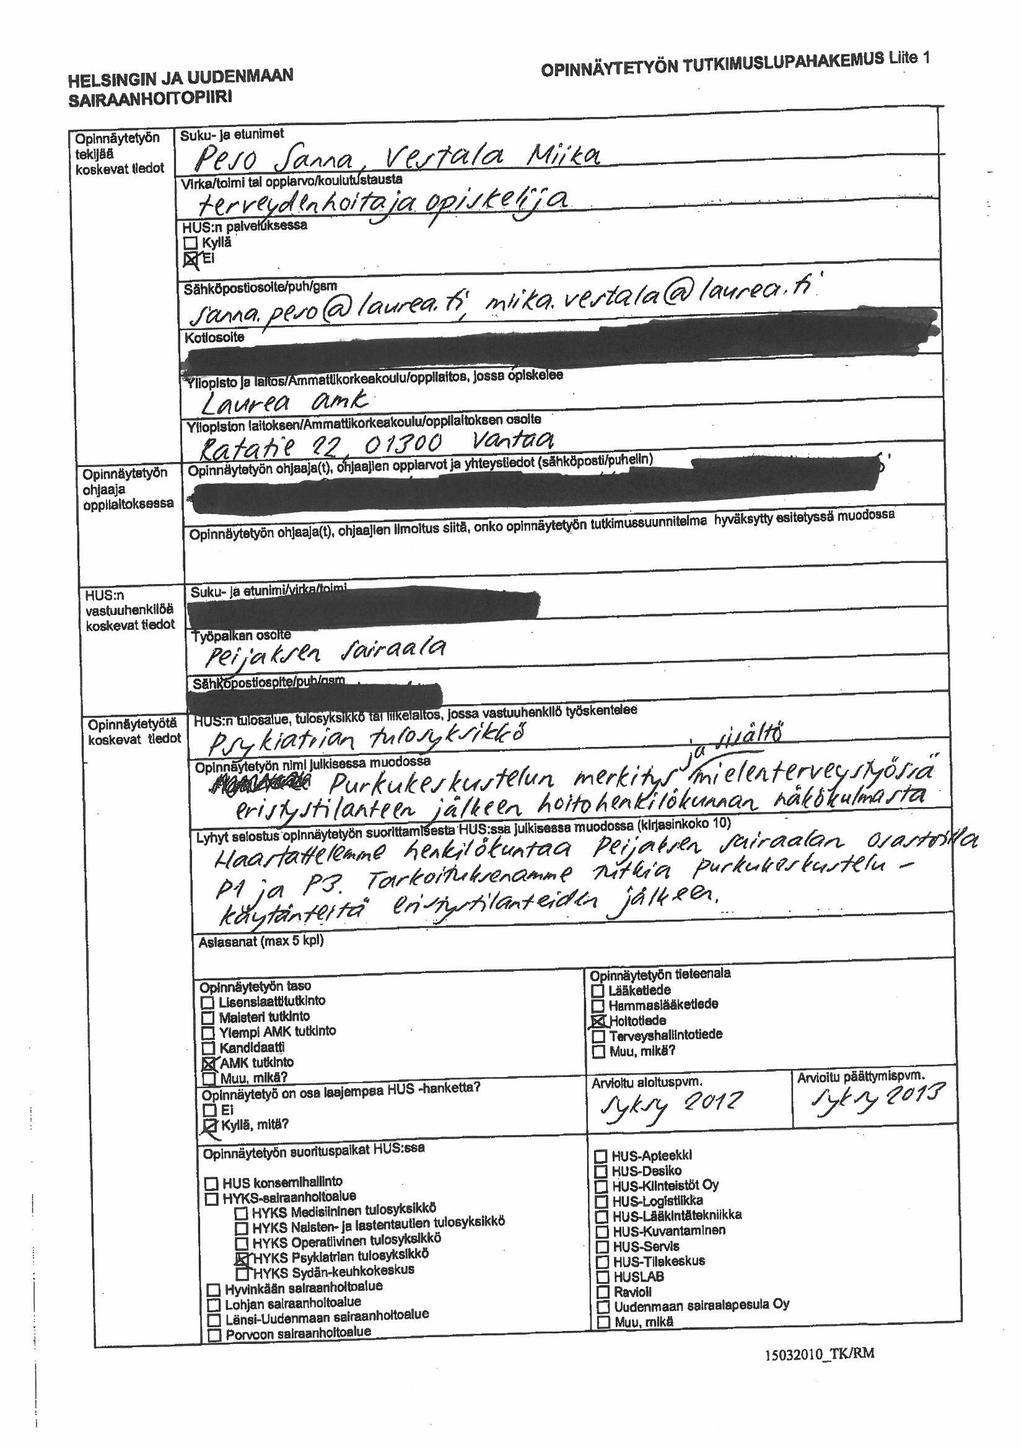 HELSINGIN JA UUDENMAAN
SAIRAANHOITOPIIRI
OPINNÄYTETYÖN TUTKIMUSLUPAHAKEMUS Liite 1
Opinnäytetyön
tekijää
koskevat tiedot
Suku- ja etunimet
Peso Sanna, Vestala Miika
Virka/toimi tai oppiarvo/koulutustausta
terveydenhoitajaopiskelija
HUS:n palveluksessa
☐ Kyllä
☒ Ei
Sähköpostiosoite/puh/gsm
sanna.peso@laurea.fi, miika.vestala@laurea.fi
Kotiosoite
Yliopisto ja laitos/Ammattikorkeakoulu/oppilaitos, jossa opiskelee
Laurea amk
Yliopiston laitoksen/Ammattikorkeakoulu/oppilaitoksen osoite
Ratatie 22, 01300 Vantaa
Opinnäytetyön
ohjaaja
oppilaitoksessa
Opinnäytetyön ohjaaja(t), ohjaajien oppiarvot ja yhteystiedot (sähköposti/puhelin)
Opinnäytetyön ohjaaja(t), ohjaajien ilmoitus siitä, onko opinnäytetyön tutkimussuunnitelma hyväksytty esitetyssä muodossa
HUS:n
vastuuhenkilöä
koskevat tiedot
Suku- ja etunimi/virka/toimi
Työpaikan osoite
Peijaksen sairaala
Sähköpostiosoite/puh/gsm
Opinnäytetyötä
koskevat tiedot
HUS:n tulosalue, tulosyksikkö tai liikelaitos, jossa vastuuhenkilö työskentelee
Psykiatrian tulosyksikkö
Opinnäytetyön nimi julkisessa muodossa
ja sisältö
Purkukeskustelun merkitys mielenterveystyössä
eristystilanteen jälkeen hoitohenkilökunnan näkökulmasta
Lyhyt selostus opinnäytetyön suorittamisesta HUS:ssa julkisessa muodossa (kirjasinkoko 10)
Haastattelemme henkilökuntaa Peijaksen sairaalan osastoilla
P1 ja P3. Tarkoituksenamme tutkia purkukeskustelu-
käytänteitä eristystilanteiden jälkeen.
Asiasanat (max 5 kpl)
Opinnäytetyön taso
☐ Lisensiaattitutkinto
☐ Maisteri tutkinto
☐ Ylempi AMK tutkinto
☐ Kandidaatti
☒ AMK tutkinto
☐ Muu, mikä?
Opinnäytetyön tieteenala
☐ Lääketiede
☐ Hammaslääketiede
☒ Hoitotiede
☐ Terveyshallintotiede
☐ Muu, mikä?
Opinnäytetyö on osa laajempaa HUS -hanketta?
☐ Ei
☒ Kyllä, mitä?
Arvioitu aloituspvm.
Syksy 2012
Arvioitu päättymispvm.
Syksy 2013
Opinnäytetyön suorituspaikat HUS:ssa
☐ HUS konsernihallinto
☐ HYKS-sairaanhoitoalue
☐ HYKS Medisiininen tulosyksikkö
☐ HYKS Naisten- ja lastentautien tulosyksikkö
☐ HYKS Operatiivinen tulosyksikkö
☒ HYKS Psykiatrian tulosyksikkö
☐ HYKS Sydän-keuhkokeskus
☐ Hyvinkään sairaanhoitoalue
☐ Lohjan sairaanhoitoalue
☐ Länsi-Uudenmaan sairaanhoitoalue
☐ Porvoon sairaanhoitoalue
☐ HUS-Apteekki
☐ HUS-Desiko
☐ HUS-Kiinteistöt Oy
☐ HUS-Logistiikka
☐ HUS-Lääkintätekniikka
☐ HUS-Kuvantaminen
☐ HUS-Servis
☐ HUS-Tilakeskus
☐ HUSLAB
☐ Ravioli
☐ Uudenmaan sairaalapesula Oy
☐ Muu, mikä
15032010_TK/RM